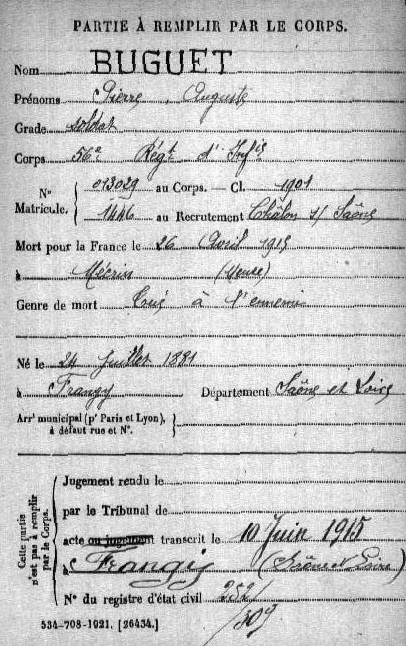 PARTIE À REMPLIR PAR LE CORPS.
Nom BUGUET
Prénoms Pierre Auguste
Grade soldat
Corps 56e Régt d'Infie
N° Matricule. { 013029 au Corps. — Cl. 1901
1446 au Recrutement Châlon s/ Saône
Mort pour la France le 26 Avril 1915
à Mécrin (Meuse)
Genre de mort Tué à l'ennemi
Né le 24 Juillet 1881
à Frangy Département Saône et Loire
Arrt municipal (pr Paris et Lyon), à défaut rue et N°. }
Cette partie n'est pas à remplir par le Corps.
Jugement rendu le
par le Tribunal de
acte ou jugement transcrit le 10 Juin 1915
à Frangy (Saône et Loire)
N° du registre d'état civil 252
/309
534-708-1921. [26434.]